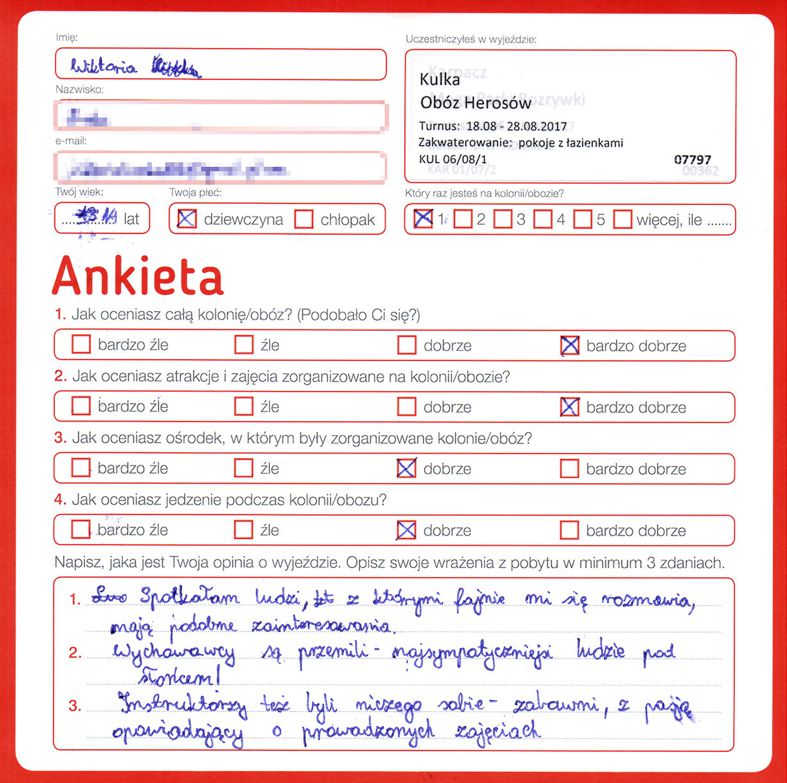 Imię:
Uczestniczyłeś w wyjeździe:
Wiktoria
Kulka
Obóz Herosów
Turnus: 18.08 - 28.08.2017
Zakwaterowanie: pokoje z łazienkami
KUL 06/08/1 07797
Karpacz
Rozrywki
KAR 01/07/2 00362
Nazwisko:
e-mail:
Twój wiek:
Twoja płeć:
Który raz jesteś na kolonii/obozie?
14 lat
dziewczyna chłopak
1 2 3 4 5 więcej, ile .......
Ankieta
1. Jak oceniasz całą kolonię/obóz? (Podobało Ci się?)
bardzo źle źle dobrze bardzo dobrze
2. Jak oceniasz atrakcje i zajęcia zorganizowane na kolonii/obozie?
bardzo źle źle dobrze bardzo dobrze
3. Jak oceniasz ośrodek, w którym były zorganizowane kolonie/obóz?
bardzo źle źle dobrze bardzo dobrze
4. Jak oceniasz jedzenie podczas kolonii/obozu?
bardzo źle źle dobrze bardzo dobrze
Napisz, jaka jest Twoja opinia o wyjeździe. Opisz swoje wrażenia z pobytu w minimum 3 zdaniach.
1. Spotkałam ludzi, z którymi fajnie mi się rozmawia,
mają podobne zainteresowania.
2. Wychowawcy są przemili - najsympatyczniejsi ludzie pod
słońcem!
3. Instruktorzy też byli niczego sobie - zabawni, z pasją
opowiadający o prowadzonych zajęciach